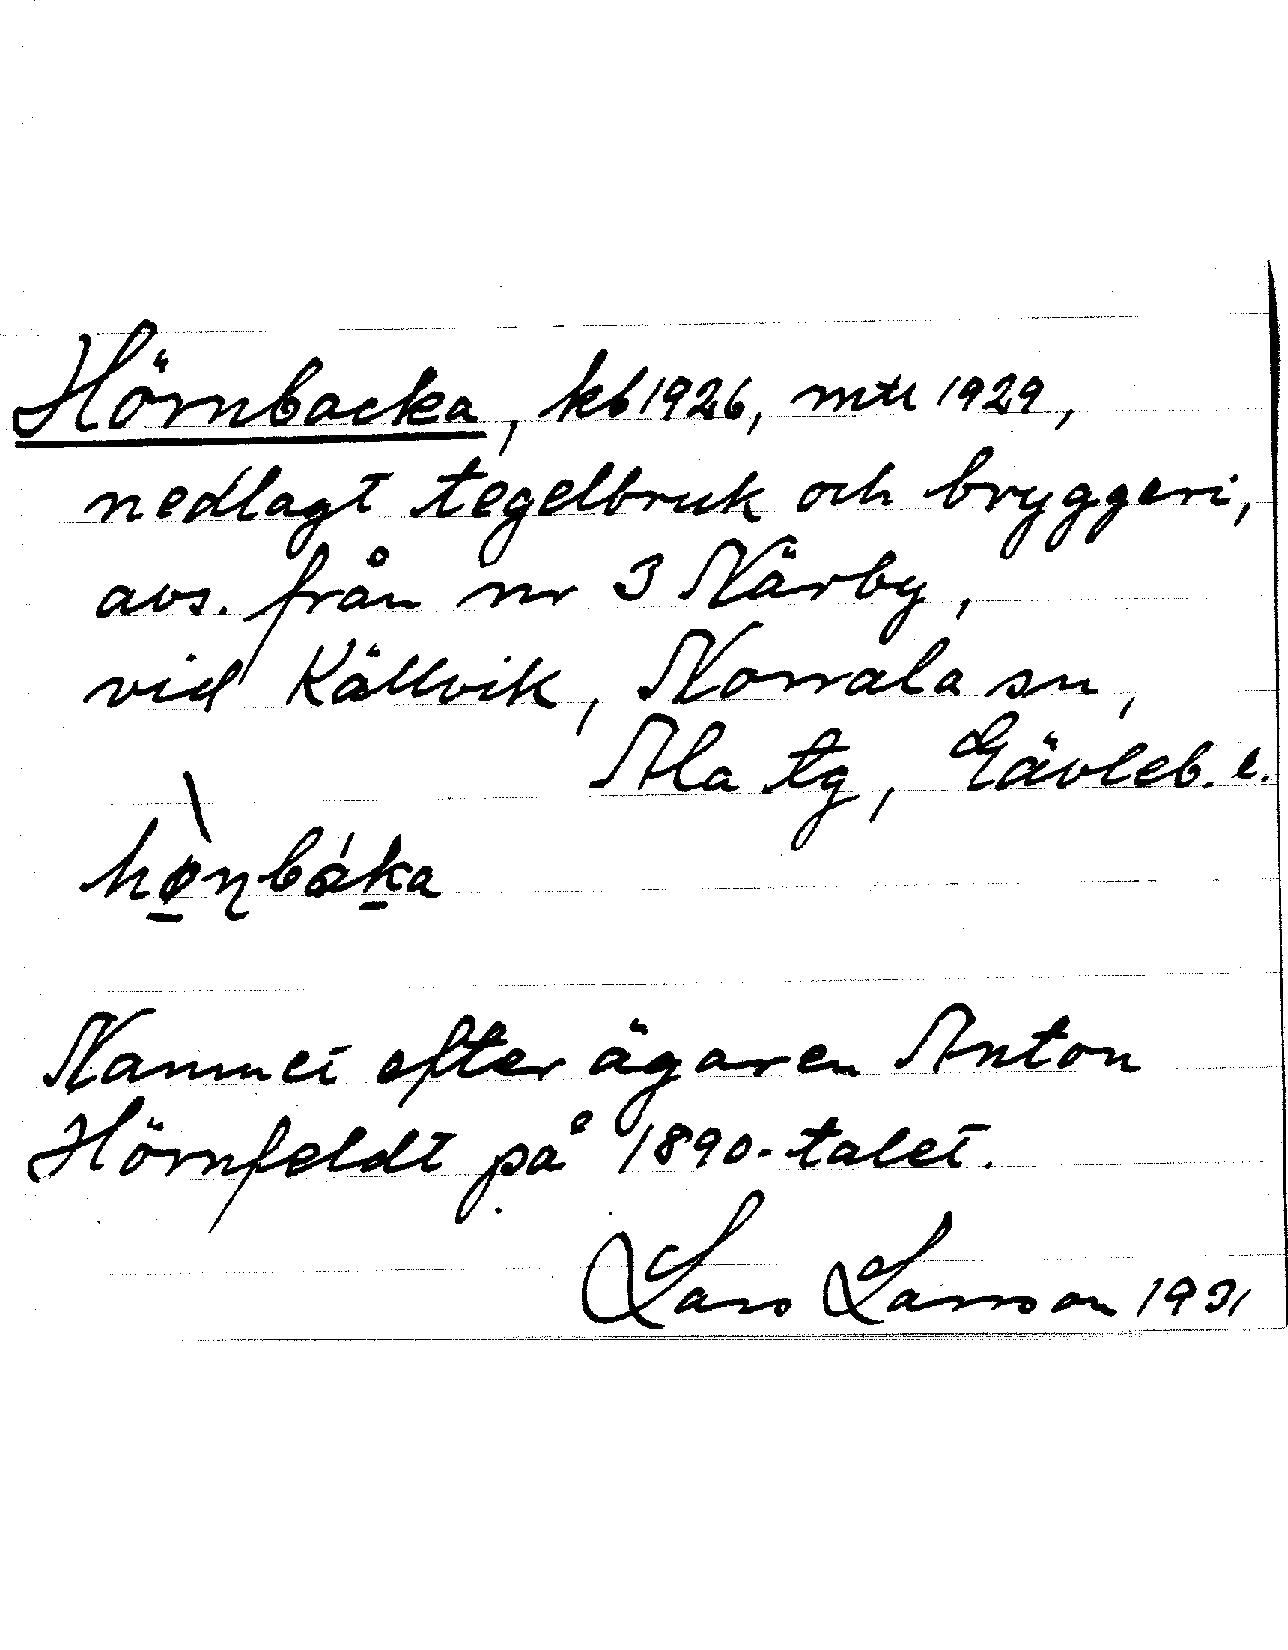 Hörnbacka, kb 1926, mtl 1929,
nedlagt tegelbruk och bryggeri,
avs. från nr 3 Närby,
vid Källvik, Norrala sn,
Ala tg, Gävleb. l.
hø̱̀ɳbák̠a
Namnet efter ägaren Anton
Hörnfeldt på 1890-talet.
Lars Larsson 1931